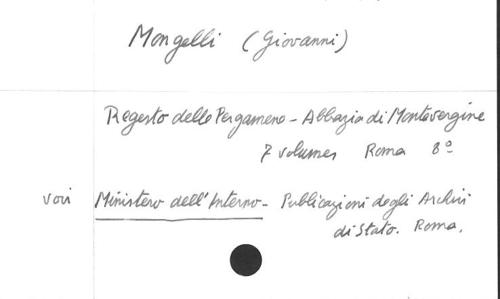 Mongelli (Giovanni)
Regesto delle Pergamene - Abbazia di Montevergine
7 volumes Roma 8º
voir Ministero dell'Interno - Publicazioni degli Archivi
di Stato. Roma.